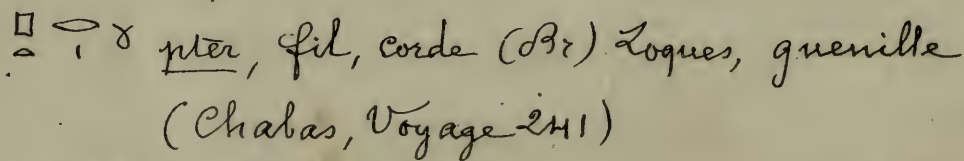 𓊪𓏏𓂋𓏤𓍢 pter, fil, corde (Br) Loques, guenille
(Chabas, Voyage 241)